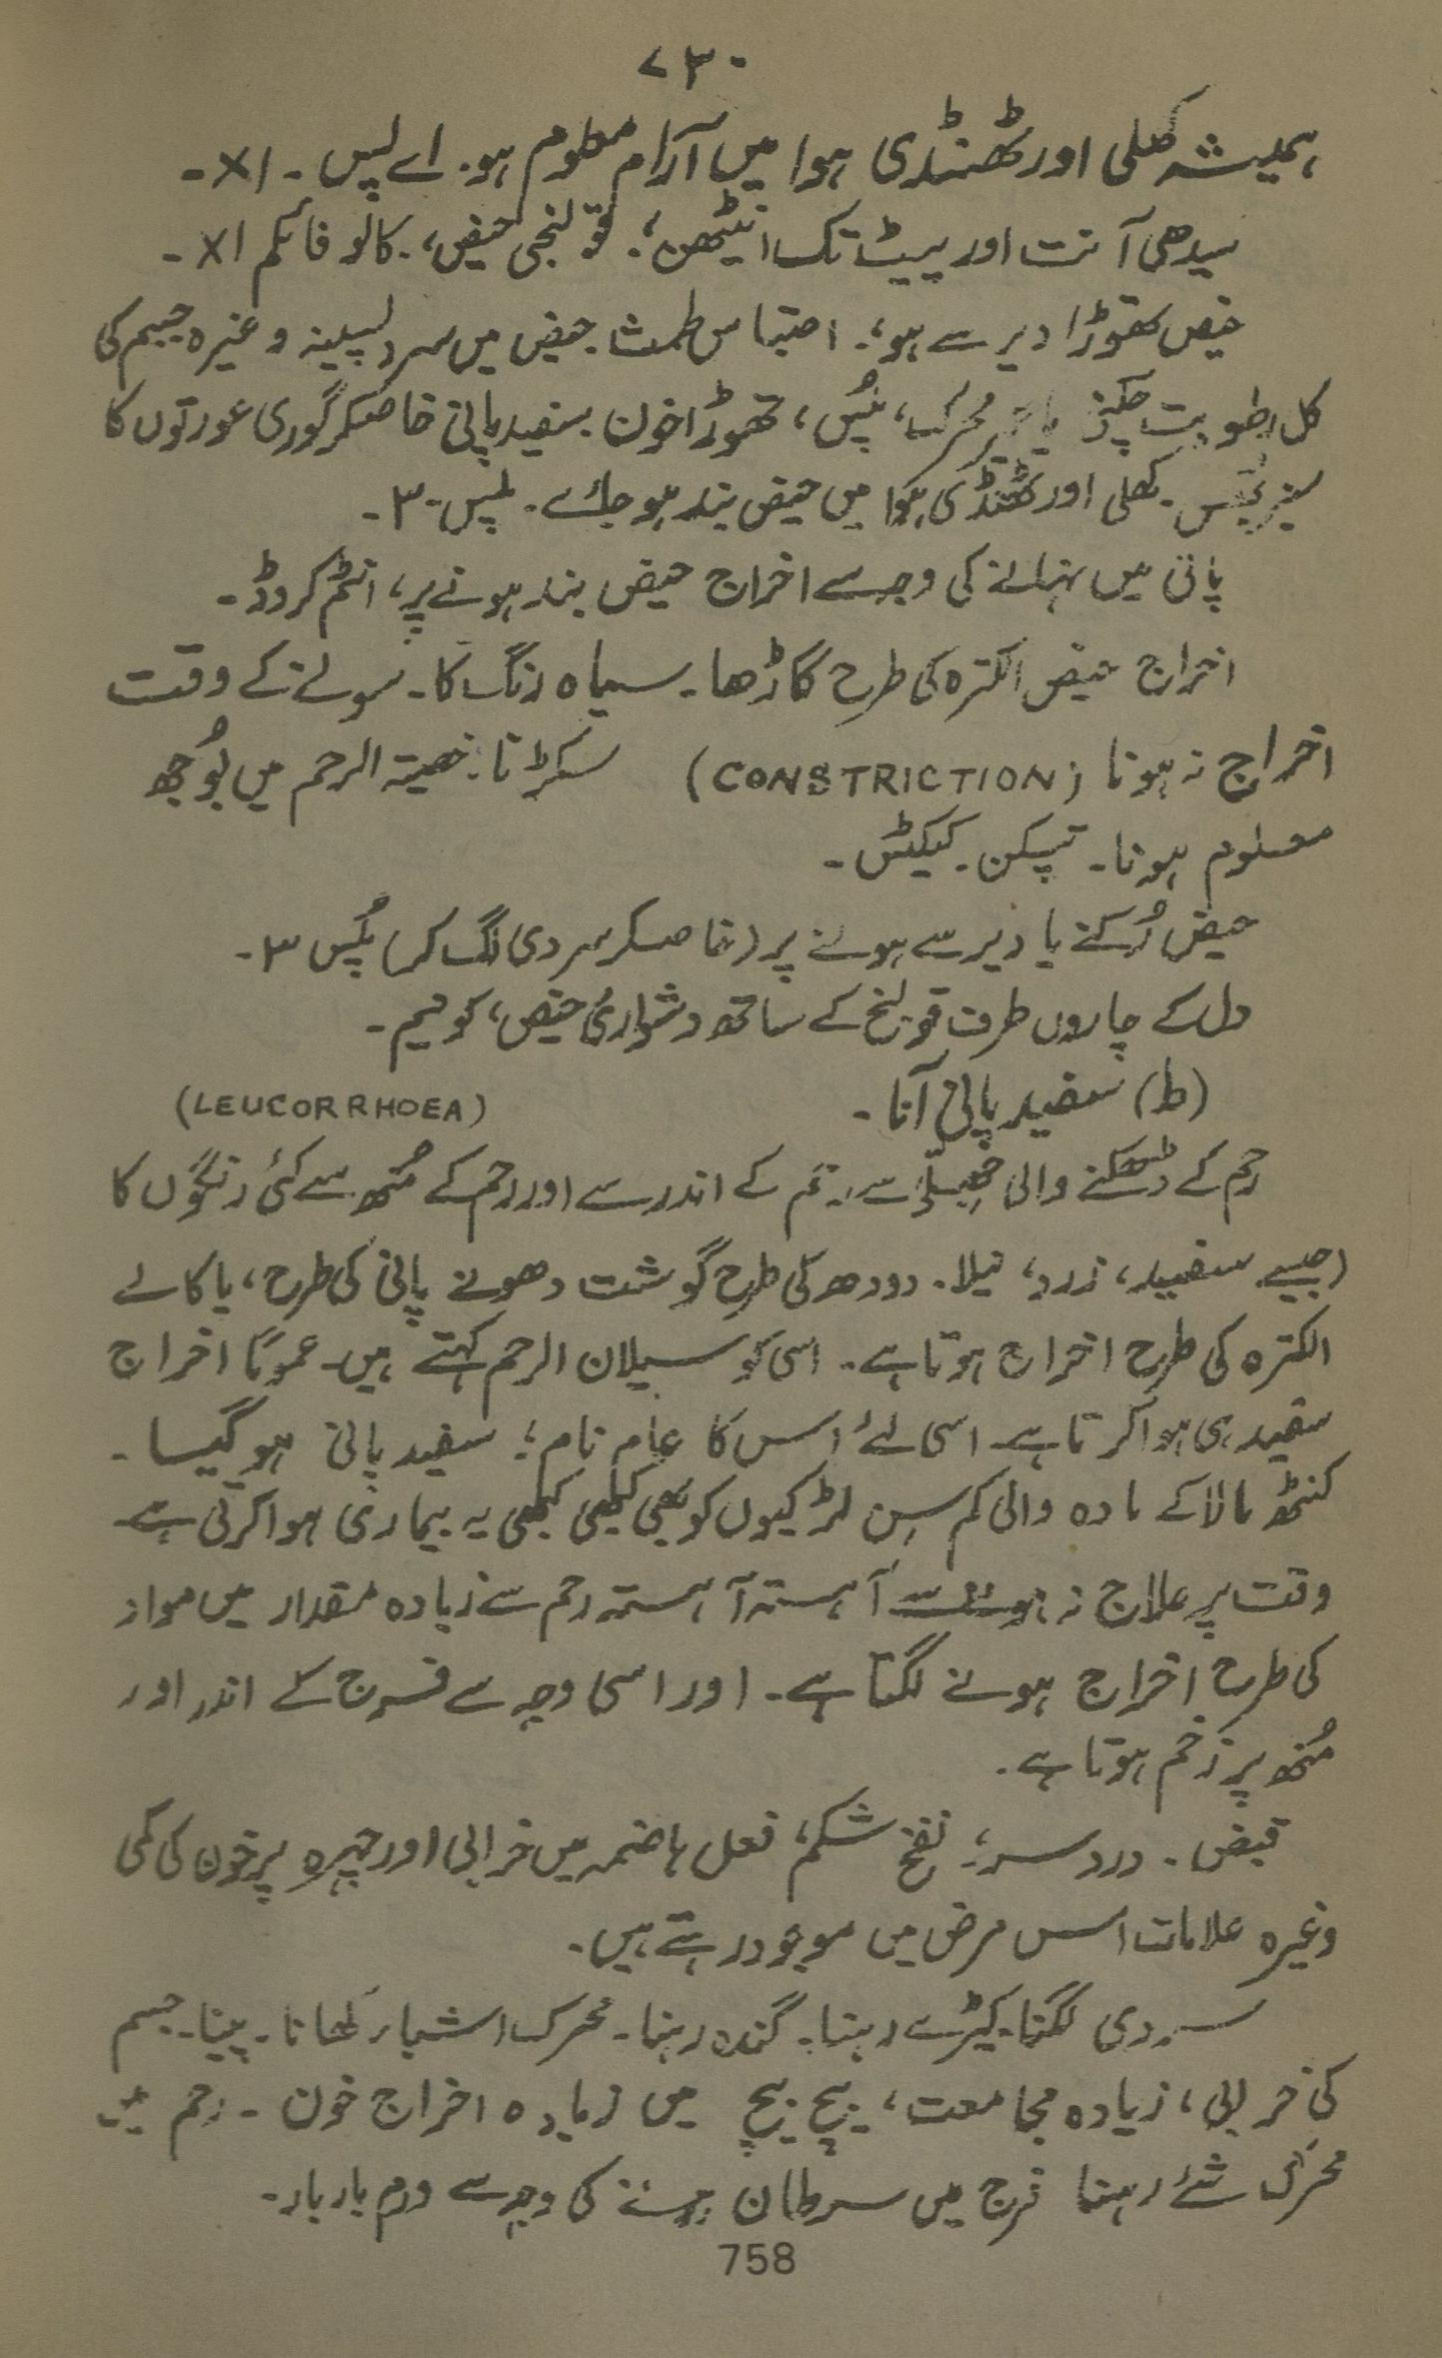 ۷۳۰
ہمیشہ کھلی اور ٹھنڈی ہوا میں آرام معلوم ہو۔ اے پس ۔ ۱X ۔
سیدھی آنت اور پیٹ تک اینٹھن؛ قولنجی حیض، کالو فائلم ۱X ۔
حیض تھوڑا دیر سے ہو؛ احتباس طمث حیض میں سرد پسینہ وغیرہ جسم کی
کل رطوبت محرک، پُس، تھوڑا خون سفید پانی خاصکر گوری عورتوں کا
کھلی اور ٹھنڈی ہوا میں حیض بند ہو جائے ۔ پلس ۔ ۳ ۔
پانی میں نہانے کی وجہ سے اخراج حیض بند ہونے پر، انٹم کروڈ ۔
اخراج حیض الکترہ کی طرح گاڑھا ۔ سیاہ رنگ کا ۔ سونے کے وقت
اخراج نہ ہونا (CONSTRICTION) سکڑنا ۔ خصیۃ الرحم میں بُوجھ
معلوم ہونا ۔ تپکن ۔ کیکٹس ۔
حیض رُکنے یا دیر سے ہونے پر (خاصکر سردی لگ کر) پُلس ۳ ۔
دل کے چاروں طرف قولنج کے ساتھ دشواریٔ حیض، کوئیم ۔
(ط) سفید پانی آنا ۔ (LEUCORRHOEA)
رحم کے ڈھکنے والی جھلّی سے رحم کے اندر سے اور رحم کے مُنھ سے کئی رنگوں کا
(جیسے سفید، زرد، نیلا ۔ دودھ کی طرح گوشت دھونے پانی کی طرح، یا کالے
الکترہ کی طرح اخراج ہوتا ہے ۔ اسی کو سیلان الرحم کہتے ہیں ۔ عموًما اخراج
سفید ہی ہوا کرتا ہے ۔ اسی لئے اس کا عام نام؛ سفید پانی ہو گیا ۔
کنٹھ مالا کے مادہ والی کم سِن لڑکیوں کو بھی کبھی کبھی یہ بیماری ہوا کرتی ہے
وقت پر علاج نہ ہونے سے آہستہ آہستہ رحم سے زیادہ مقدار میں مواد
کی طرح اخراج ہونے لگتا ہے ۔ اور اسی وجہ سے فرج کے اندر اور
مُنھ پر زخم ہوتا ہے ۔
قبض ۔ درد سر؛ نفخ شکم، فعل ہاضمہ میں خرابی اور چہرہ پر خون کی کمی
وغیرہ علامات اس مرض میں موجود رہتے ہیں ۔
سردی لگنا ۔ کیڑے رہنا ۔ گندہ رہنا ۔ محرک اشیاء کھانا ۔ پینا ۔ جسم
کی خرابی، زیادہ مجامعت، بیچ بیچ میں زیادہ اخراج خون ۔ رحم میں
محرک شئے رہنا فرج میں سرطان ہونے کی وجہ سے ورم بار بار ۔
758